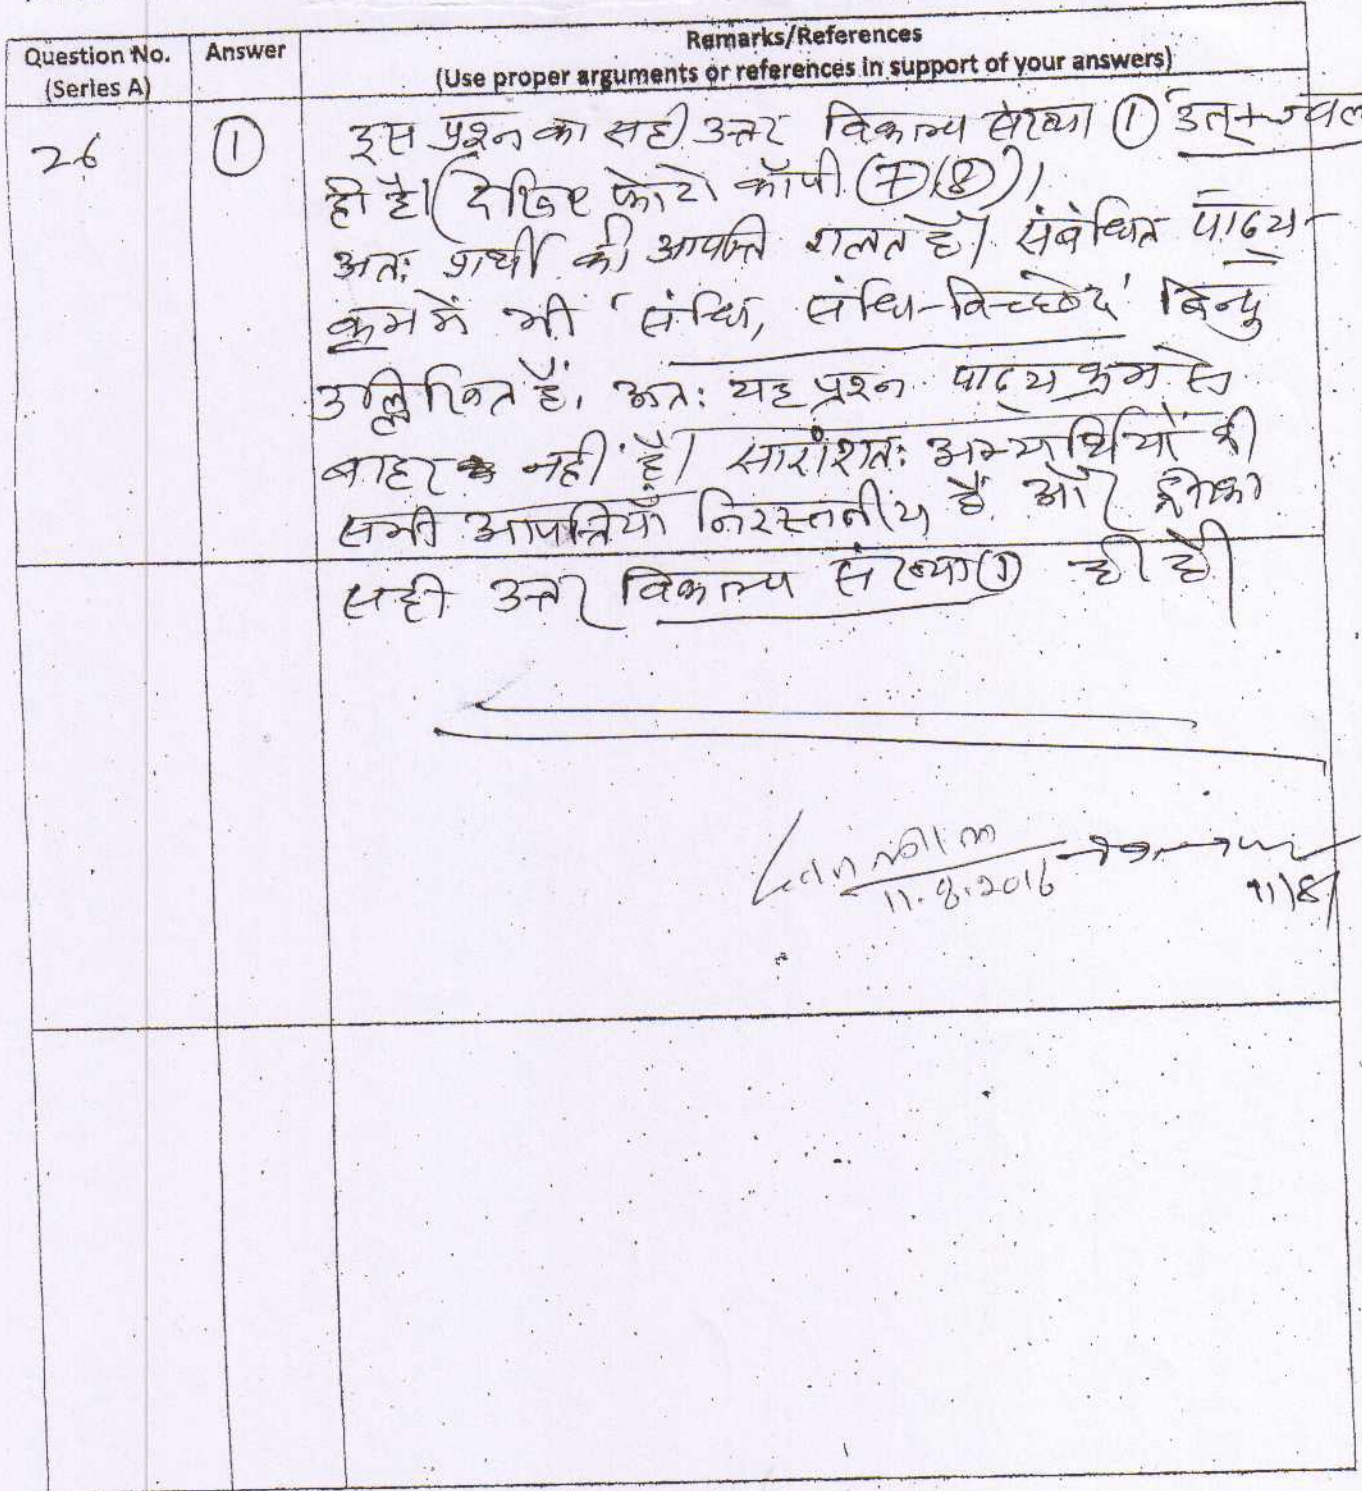 Question No. Answer Remarks/References
(Series A) (Use proper arguments or references in support of your answers)
26 ① इस प्रश्न का सही उत्तर विकल्प संख्या ① 'उत्+ज्वल
ही है। (देखिए फोटो कॉपी ⑦(⑧))।
अतः प्रार्थी की आपत्ति गलत है। संबंधित पाठ्य-
क्रम में भी 'संधि, संधि-विच्छेद' बिन्दु
उल्लिखित हैं, अतः यह प्रश्न पाठ्यक्रम से
बाहर नहीं है। सारांशतः अभ्यर्थियों की
सभी आपत्तियाँ निरस्तनीय हैं और इसका
सही उत्तर विकल्प संख्या ① ही है।
11.8.2016 11/8/